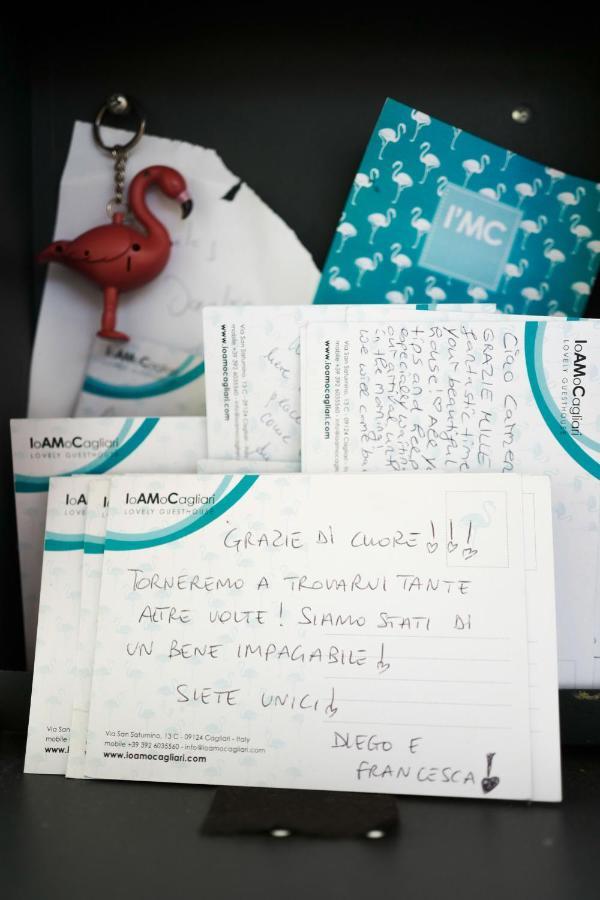 I'MC
IoAMoCagliari
www.ioamocagliari.com
Via San Saturnino, 13 C - 09124 Cagliari
mobile +39 392 6035560
IoAMoCagliari
LOVELY GUESTHOUSE
Ciao Carmen
GRAZIE MILLE
fantastic time
your beautiful
house!
tips and help
especially
in the morning
we will come
IoAMoCagliari
LOVELY GUESTHOUSE
IoAMoCagliari
LOVELY GUESTHOUSE
GRAZIE DI CUORE!!!
TORNEREMO A TROVARVI TANTE
ALTRE VOLTE! SIAMO STATI DI
UN BENE IMPAGABILE!
SIETE UNICI!
DIEGO E
FRANCESCA!
Via San Saturnino, 13 C - 09124 Cagliari - Italy
mobile +39 392 6035560 - info@ioamocagliari.com
www.ioamocagliari.com
Via San
www.